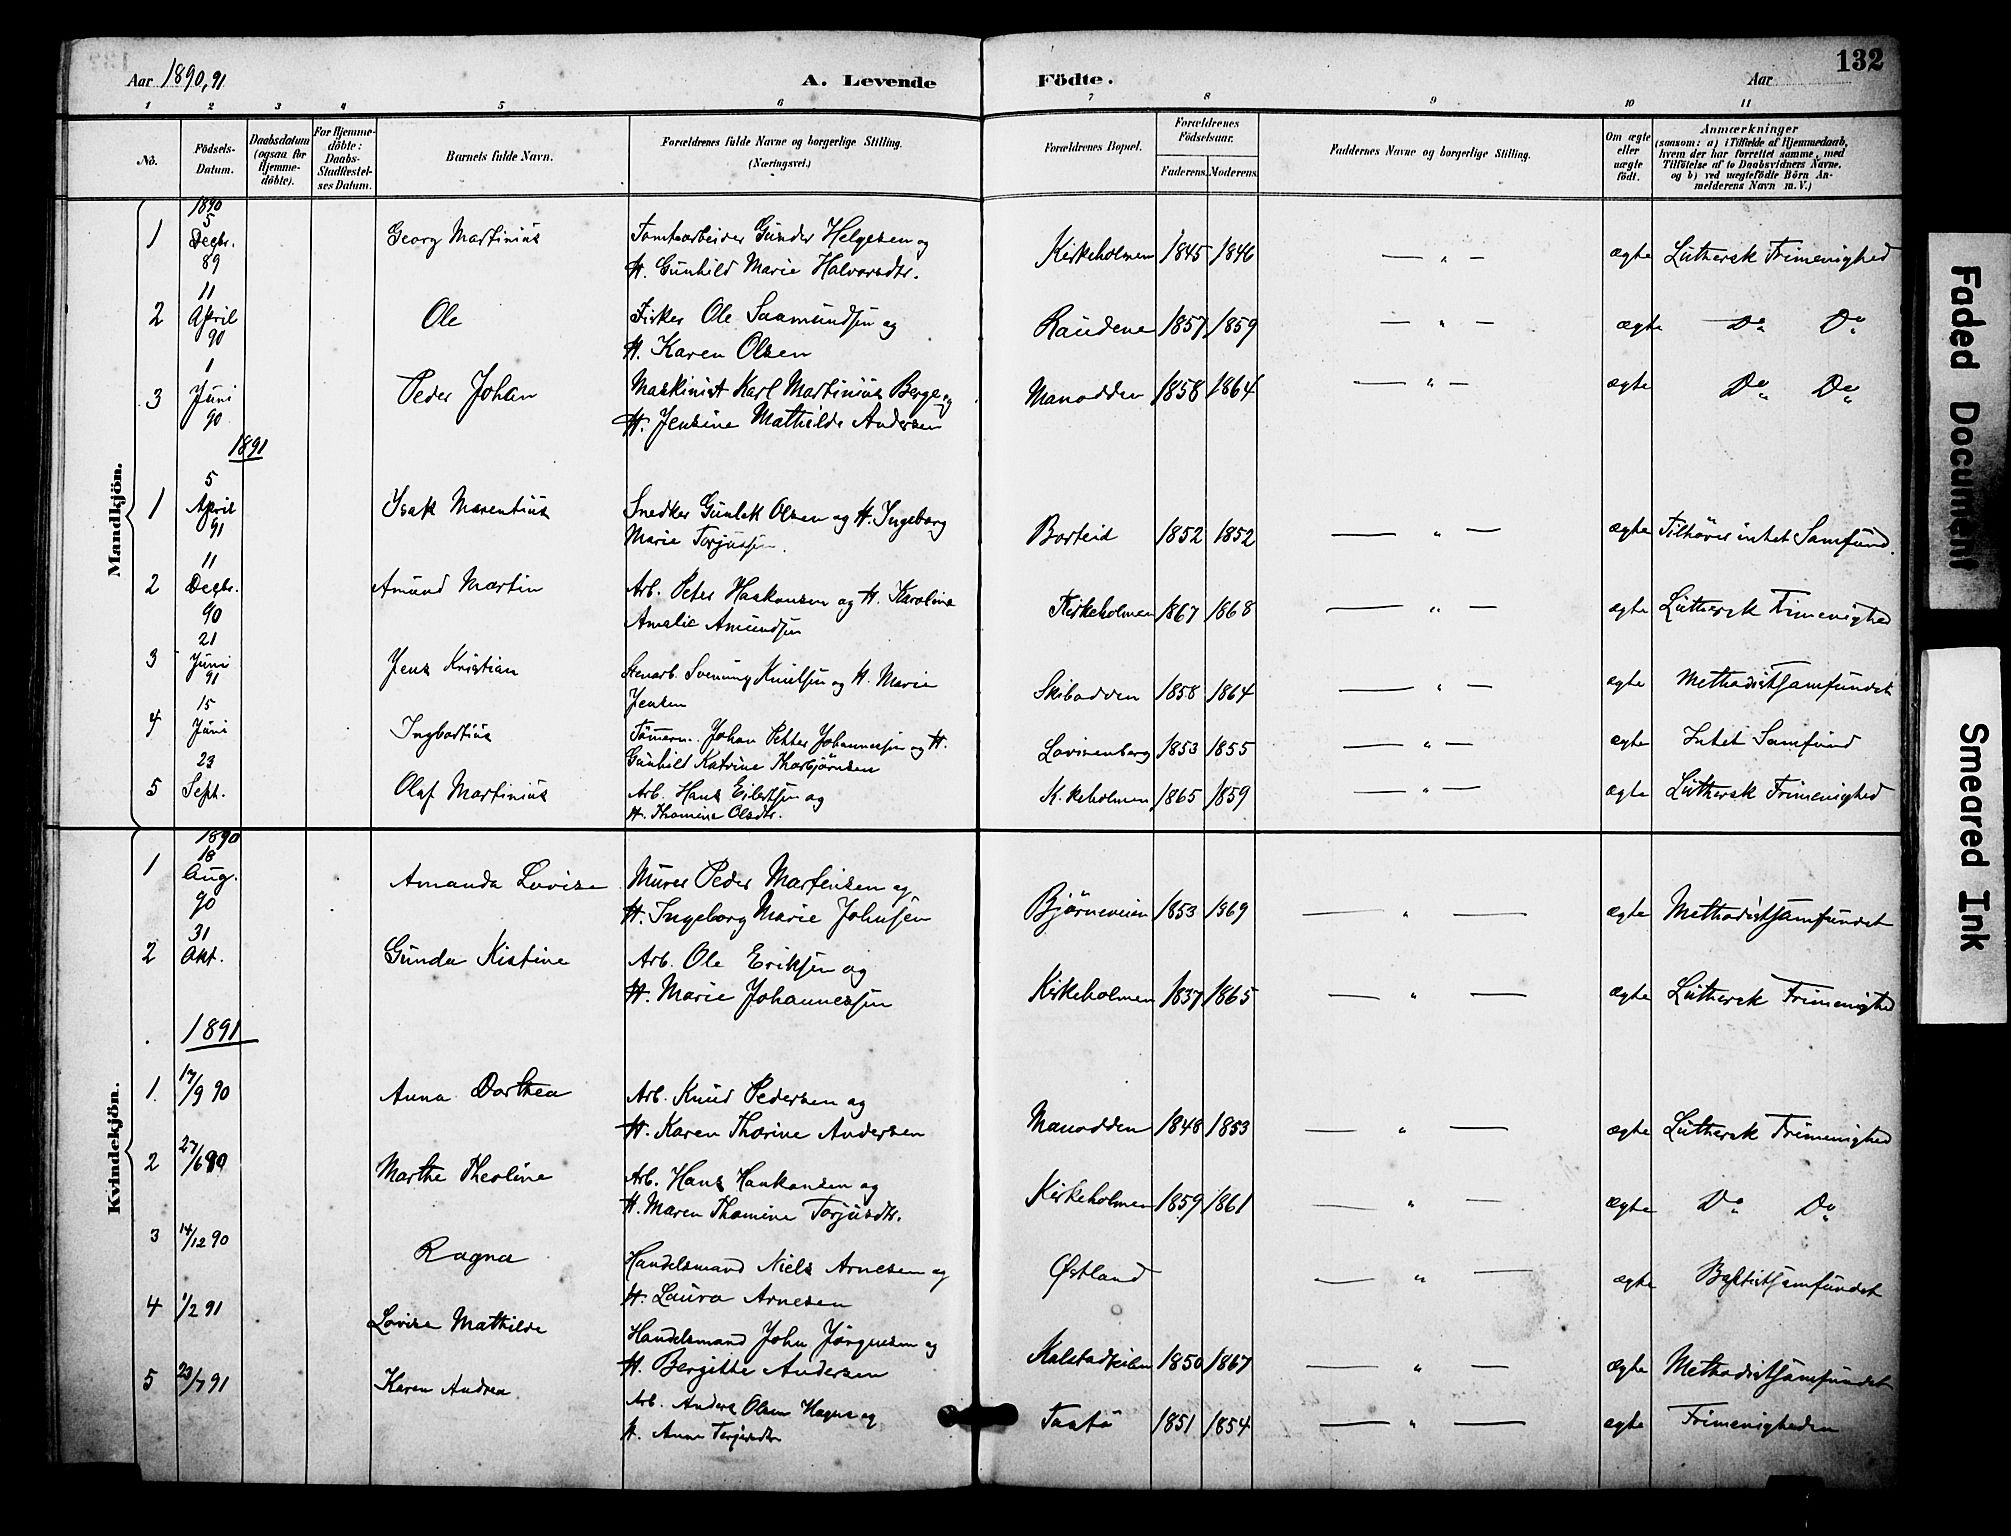 132
Aar 1890,91
A. Levende
Födte.
Aar
1 2 3 4 5 6 7 8 9 10 11
No.
Födsels-
Datum.
Daabsdatum
(ogsaa for
Hjemme-
döbte).
For Hjemme-
döbte:
Daabs-
Stadfæstel-
ses Datum.
Barnets fulde Navn.
Forældrenes fulde Navne og borgerlige Stilling.
(Næringsvei.)
Forældrenes Bopæl.
Forældrenes
Födselsaar.
Faderens. Moderens.
Faddernes Navne og borgerlige Stilling.
Om ægte
eller
uægte
födt.
Anmærkninger
(saasom: a) i Tilfælde af Hjemmedaab,
hvem der har forrettet samme, med
Tilföielse af to Daabsvidners Navne.
og b) ved uægtefödte Börn An-
melderens Navn m. V.)
Mandkjön.
1890
1 5 Decbr. 89 Georg Martinius Tomtearbeider Gunder Helgesen og
H. Gunhild Marie Halvorsdtr. Kirkeholmen 1845 1846 — " — ægte Luthersk Frimenighed
2 11 April 90 Ole Fisker Ole Saamundsen og
H. Karen Olsen Raudene 1857 1859 — " — ægte Do Do
3 1 Juni 90 Peder Johan Maskinist Karl Martinius Berge og
H. Jensine Mathilde Andersen Manodden 1858 1864 — " — ægte Do Do
1891
1 5 April 91 Isak Marentius Snedker Gunlek Olsen og H. Ingeborg
Marie Torjussen. Borteid 1852 1852 — " — ægte Tilhører intet Samfund.
2 11 Decbr. 90 Amund Martin Arb. Peter Haakonsen og H. Karoline
Amalie Amundsen Kirkeholmen 1867 1868 — " — ægte Luthersk Frimenighed
3 21 Juni 91 Jens Kristian Stenarb. Svenung Knutsen og H. Marie
Jensen Skibodden 1858 1864 — " — ægte Methodistsamfundet
4 15 Juni Ingbartius Tømern. Johan Petter Johannessen og H.
Gunhild Katrine Thorbjørnsen Lovisenberg 1853 1855 — " — ægte Intet Samfund
5 23 Sept. Olaf Martinius Arb. Hans Eilertsen og
H. Thomine Olsdtr. K.keholmen 1865 1859 — " — ægte Luthersk Frimenighed
Kvindekjön.
1890
1 18 Aug. 90 Amanda Lovise Murer Peder Martinsen og
H. Ingeborg Marie Johnsen Bjørneveien 1853 1869 — " — ægte Methodistsamfundet
2 31 Okt. Gunda Kistine Arb. Ole Eriksen og
H. Marie Johannessen Kirkeholmen 1837 1865 — " — ægte Luthersk Frimenighed
1891
1. 17/9 90 Anna Dorthea Arb. Knud Pedersen og
H. Karen Thorine Andersen Manodden 1848 1853 — " — ægte Luthersk Frimenighed
2 27/6 90 Marthe Theoline Arb. Hans Haakonsen og
H. Maren Thomine Torjusdtr. Kirkeholmen 1859 1861 — " — ægte Do Do
3 14/12 90 Ragna Handelsmand Niels Arnesen og
H. Laura Arnesen Østland — " — ægte Baptistsamfundet
4 1/2 91 Lovise Mathilde Handelsmand John Jørgensen og
H. Bergitte Andersen Kalstadkilen 1850 1867 — " — ægte Methodistsamfundet
5 23/7 91 Karen Andrea Arb. Anders Olsen Hagne og
H. Anne Terjesdtr Taatø 1851 1854 — " — ægte Frimenigheden
Faded Document
Smeared Ink